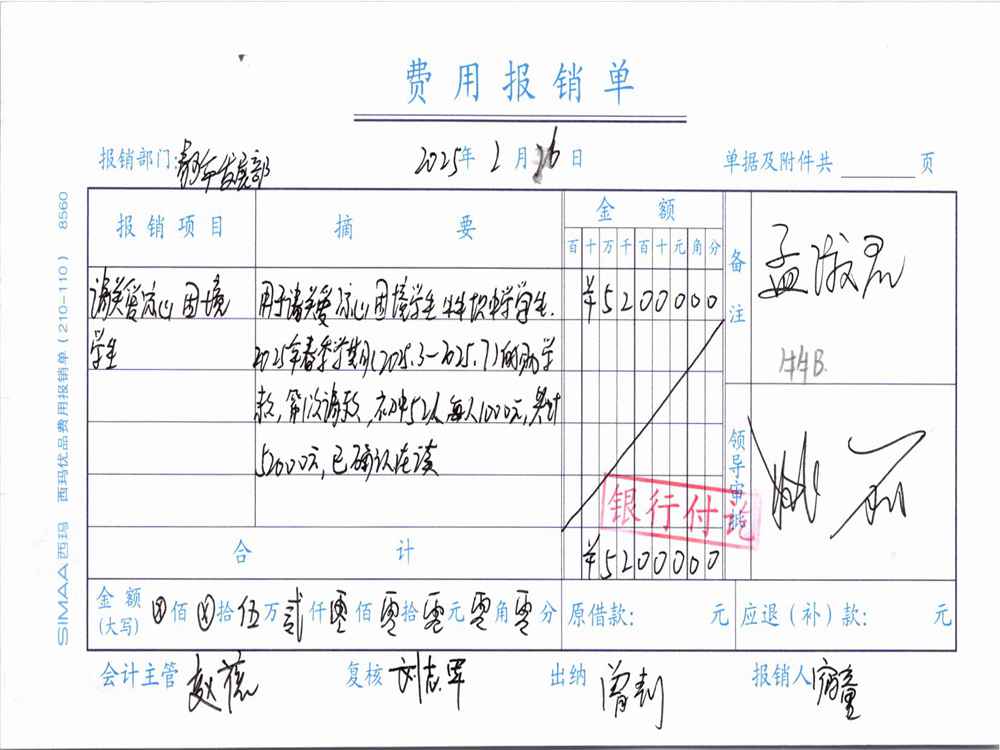 费用报销单
报销部门: 青少年发展部 2025年 2月 26日 单据及附件共 页
报销项目 摘要 金额 备注
百十万千百十元角分
请关爱 困境学生
用于请关爱 困境学生 中学学生.
2025年春季学期(2025.3-2025.7)的助学
款,第1次请款,初中52人每人1000元,共计
52000元,已确认在读
¥5200000
领导审批
银行付讫
合计 ¥5200000
金额(大写) ⊗佰⊗拾伍万贰仟零佰零拾零元零角零分 原借款: 元 应退(补)款: 元
会计主管 复核 出纳 报销人
SIMAA 西玛 西玛优品费用报销单(210-110) 8560